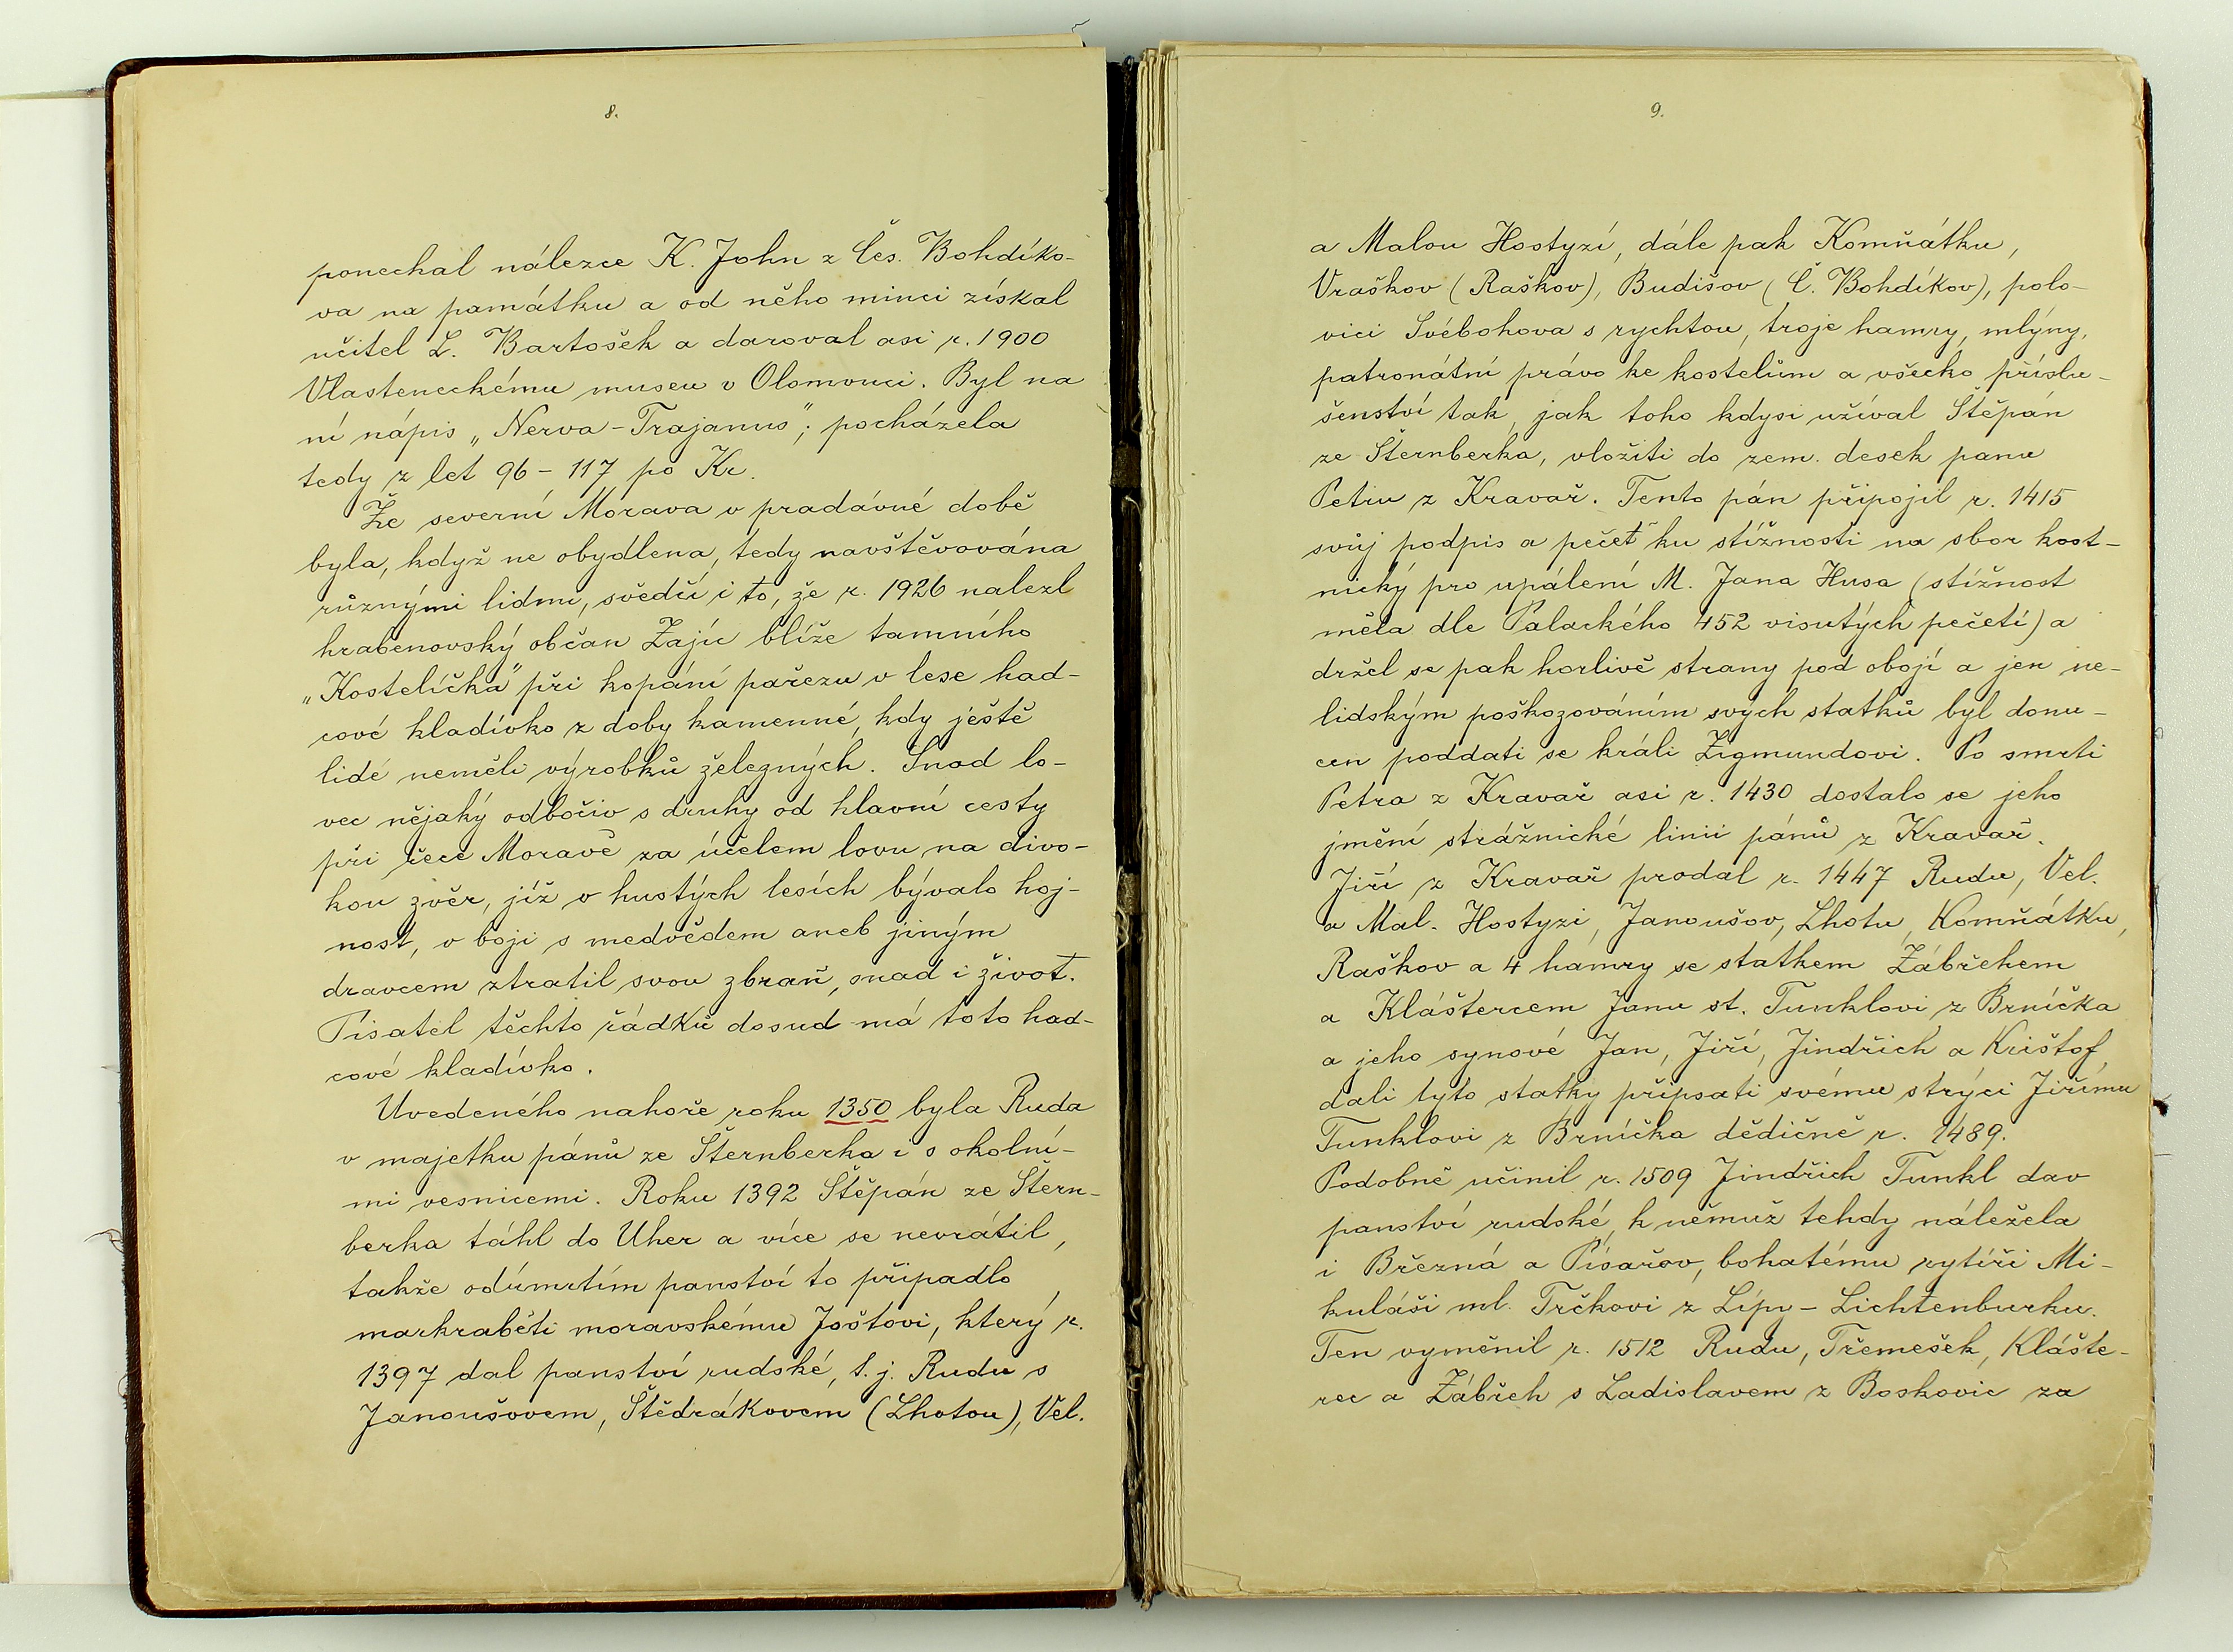 8.
ponechal nálezce K. John z Čes. Bohdíko-
va na památku a od něho minci získal
učitel L. Bartošek a daroval asi r. 1900
Vlasteneckému museu v Olomouci. Byl na
ní nápis „Nerva-Trajanus“; pocházela
tedy z let 96 - 117 po Kr.
Že severní Morava v pradávné době
byla, když ne obydlena, tedy navštěvována
různými lidmi, svědčí i to, že r. 1926 nalezl
hrabenovský občan Zajíc blíže tamního
„Kostelíčka“ při kopání pařezu v lese had-
cové kladívko z doby kamenné, kdy ještě
lidé neměli výrobků železných. Snad lo-
vec nějaký odbočiv s druhy od hlavní cesty
při řece Moravě za účelem lovu na divo-
kou zvěr, jíž v hustých lesích bývalo hoj-
nost, v boji s medvědem aneb jiným
dravcem ztratil svou zbraň, snad i život.
Pisatel těchto řádků dosud má toto had-
cové kladívko.
Uvedeného nahoře roku 1350 byla Ruda
v majetku pánů ze Šternberka i s okolní-
mi vesnicemi. Roku 1392 Štěpán ze Štern-
berka táhl do Uher a více se nevrátil,
takže odúmrtím panství to připadlo
markraběti moravskému Joštovi, který r.
1397 dal panství rudské, t. j. Rudu s
Janoušovem, Štědrákovem (Lhotou), Vel.
9.
a Malou Hostyzí, dále pak Komňátku,
Vraškov (Raškov), Budišov (Č. Bohdíkov), polo-
vici Svébohova s rychtou, troje hamry, mlýny,
patronátní právo ke kostelům a všecko příslu-
šenství tak, jak toho kdysi užíval Štěpán
ze Šternberka, vložiti do zem. desek panu
Petru z Kravař. Tento pán připojil r. 1415
svůj podpis a pečeť ku stížnosti na sbor kost-
nický pro upálení M. Jana Husa (stížnost
měla dle Palackého 452 visutých pečetí) a
držel se pak horlivě strany pod obojí a jen ne-
lidským poškozováním svých statků byl donu-
cen poddati se králi Zigmundovi. Po smrti
Petra z Kravař asi r. 1430 dostalo se jeho
jmění strážnické linii pánů z Kravař.
Jiří z Kravař prodal r. 1447 Rudu, Vel.
a Mal. Hostyzi, Janoušov, Lhotu, Komňátku,
Raškov a 4 hamry se statkem Zábřehem
a Kláštercem Janu st. Tunklovi z Brníčka
a jeho synové Jan, Jiří, Jindřich a Krištof
dali tyto statky připsati svému strýci Jiřímu
Tunklovi z Brníčka dědičně r. 1489.
Podobně učinil r. 1509 Jindřich Tunkl dav
panství rudské, k němuž tehdy náležela
i Březná a Písařov, bohatému rytíři Mi-
kuláši ml. Trčkovi z Lípy - Lichtenburku.
Ten vyměnil r. 1512 Rudu, Třemešek, Klášte-
rec a Zábřeh s Ladislavem z Boskovic za